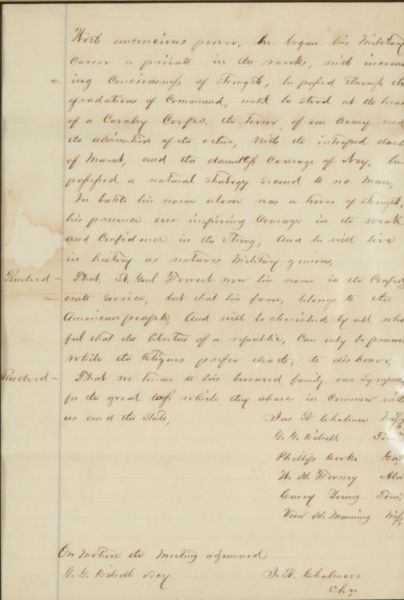 With unconcious power, he began his Military
career a private in the ranks, with increas
ing Conciousness of Strength, he passed through the
gradations of Command, until he stood at the head
of a Cavalry Corps, the terror, of one Army and
the admiration of the other, With the intrepid dash
of Murat, and the dauntless Courage of Ney, he
possessed a natural strategy second to no man,
In battle his name alone was a tower of strength,
his presence ever inspiring Courage in the weak
and Confidence in the Strong, And he will live
in history as natures Military genious,
Resolved – That, Lt Genl Forrest won his name in the Confed
erate Service, but that his fame, belongs to the
American people, And will be cherished by all
ful that the liberties of a republic, Can only be
While the Citizens prefer death, to dishonor,
Resolved – That we tender to his bereaved family, our
for the great loss which they share in Common with
us and the State,
Jas R Chalmers
G. G. Dibrell
Phillip
W. H.
Casey Young
Van H. Manning
On motion the meeting adjourned
G. G. Dibrell Secy
J. R. Chalmers
Chr